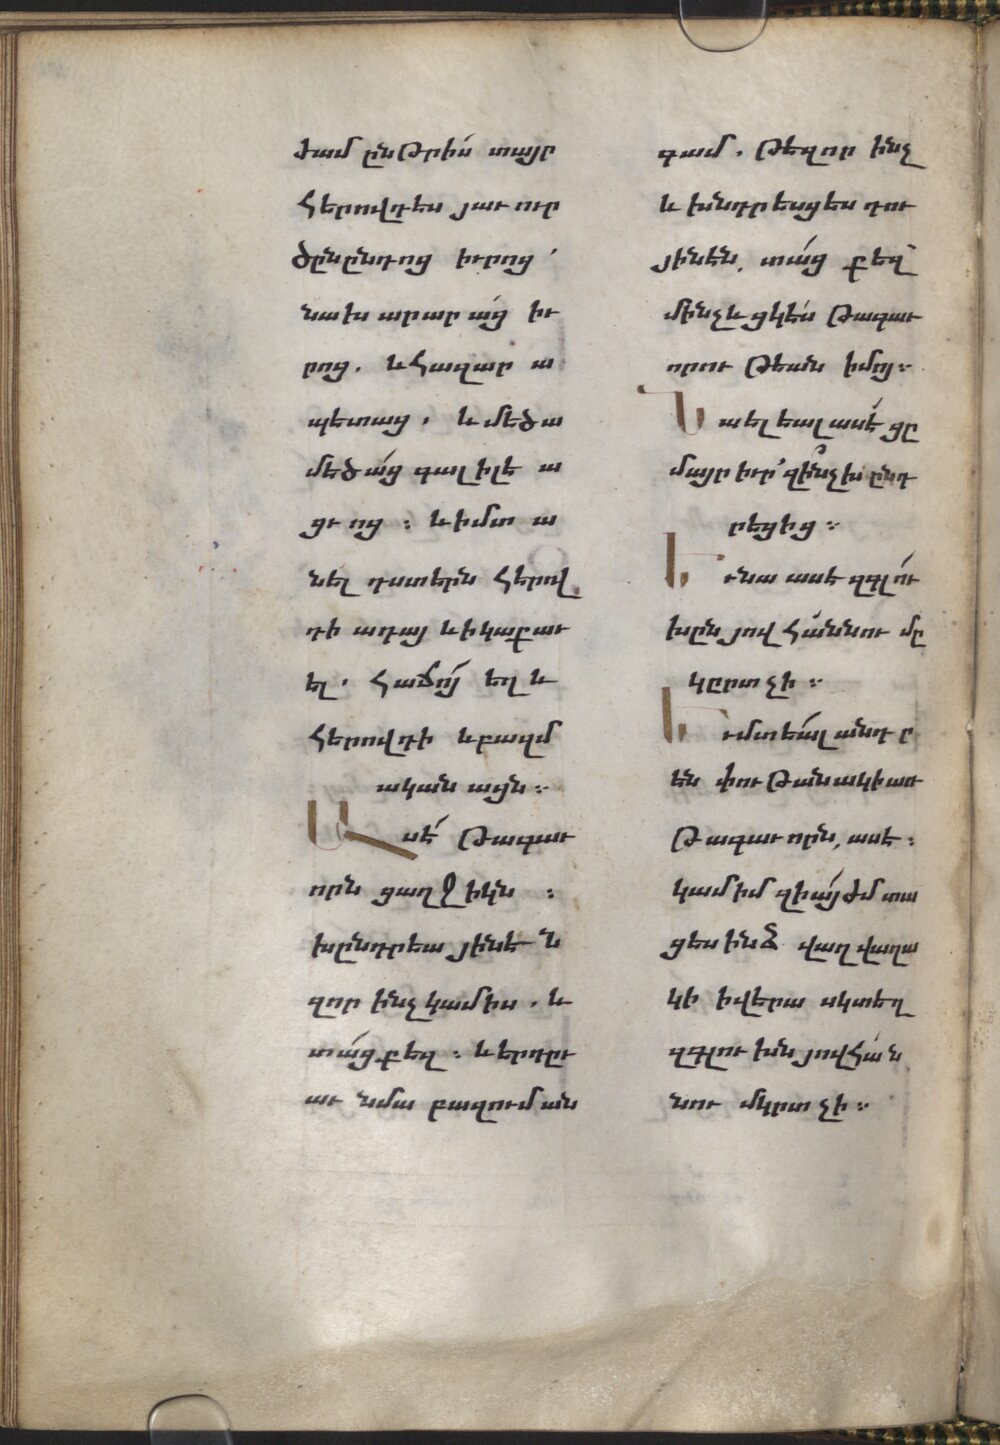 ժամ ընթրիս տայր
հերովդես յաւուր
ծընընդոց իւրոց՛
նախարարաց իւ
րոց. և հազար ա
պետաց, և մեծա
մեծաց գալիլե ա
ցւոց : և ի մտ ա
նել դստերն հերով
դի ադայ և ի կաքաւ
ել. հաճոյ եղ և
հերովդի և բազմ
ականացն։
Ասէ թագաւ
որն ցաղջիկն :
խընդրեա յինէն
զոր ինչ կամիս. և
տաց քեզ : և երդըւ
աւ նմա բազում ան
գամ. թեզոր ինչ
և խնդրեսցես դու
յինէն, տաց քեզ՝
մինչև ցկէս թագաւ
որութեան իմոյ։
Նա ելեալ ասէ ցը
մայր իւր՝ զի՞նչ խընդ
րեցից։
Եւ նա ասէ զգլու
խըն յովհաննու մը
կըրտչի։
Եւ մտեալ անդր
էն փութանակի առ
թագաւորն, ասէ :
կամիմ զի այժմ տա
ցես ինձ վաղվաղա
կի ի վերա սկտեղ
զգլուխն յովհան
նու մկրտչի։